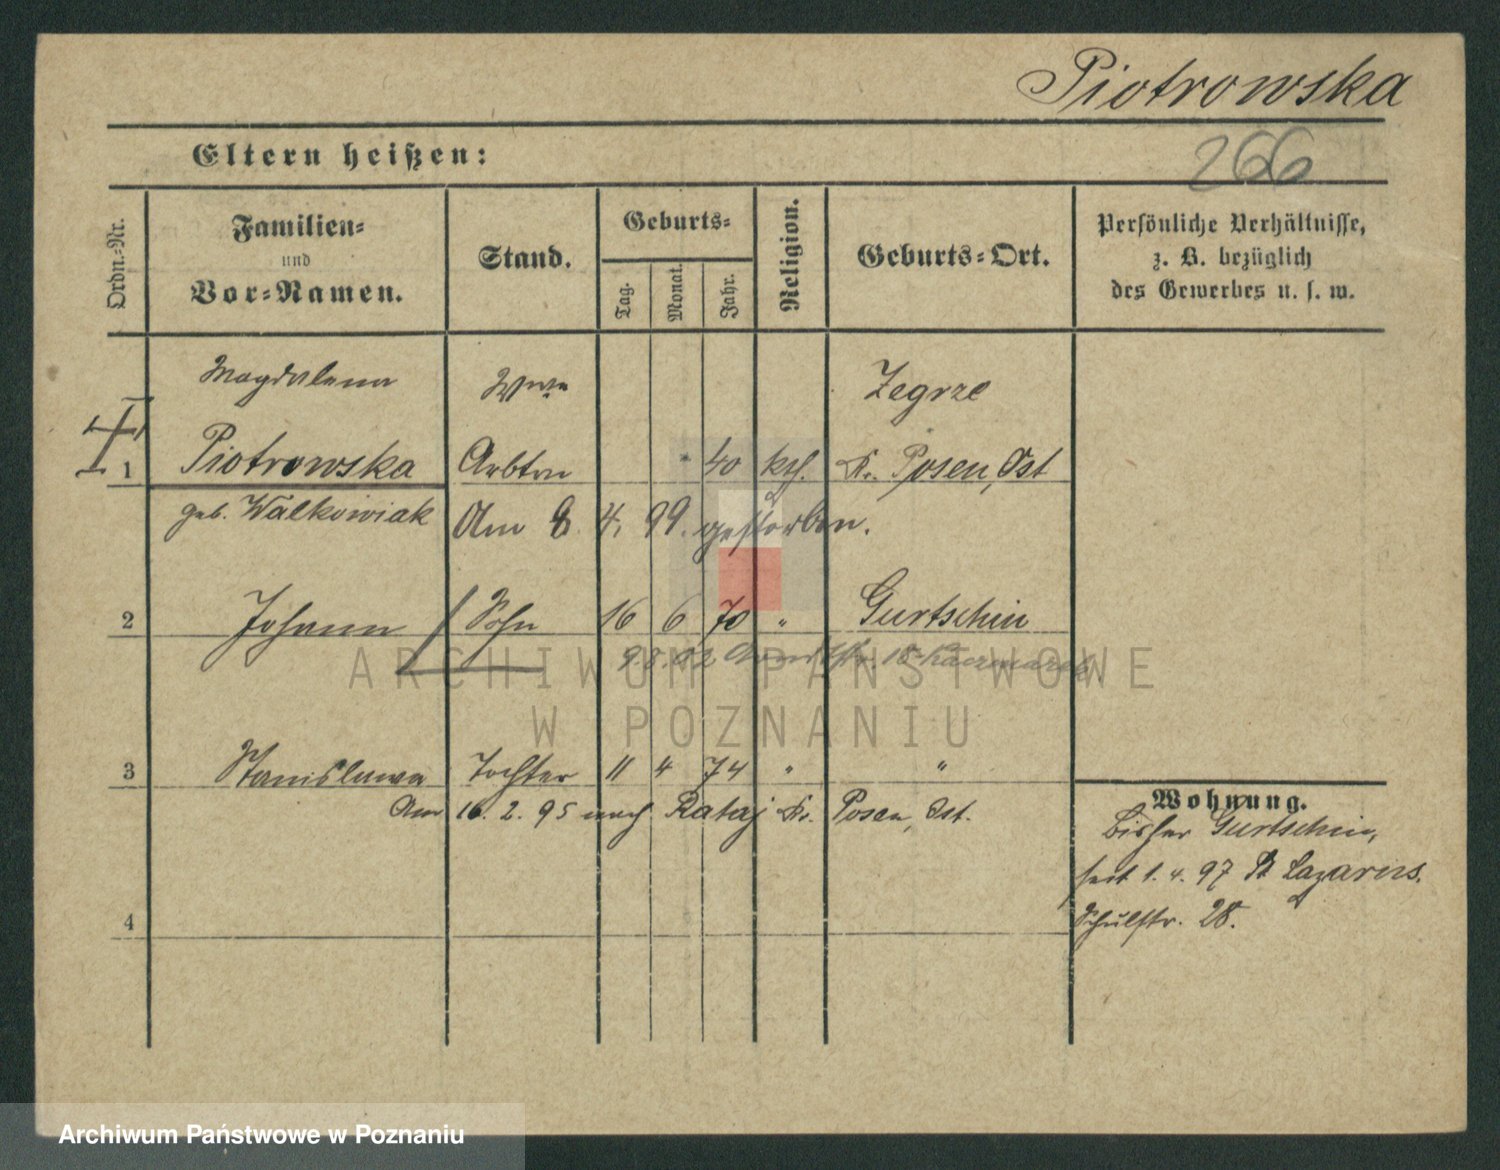 Piotrowska
266
Eltern heißen:
Ordn.-Nr.
Familien-
und
Vor-Namen.
Stand.
Geburts-
Tag.
Monat.
Jahr.
Religion.
Geburts-Ort.
Persönliche Verhältnisse,
z. B. bezüglich
des Gewerbes u. s. w.
Magdalena Wwe Zegrze
1 Piotrowska Arbtrn 40 kth. Kr. Posen, Ost
geb. Walkowiak Am 8. 4. 99. gestorben.
2 Johann Sohn 16 6 70 " Gurtschin
9.8.02 18 Kaczmarek
3 Stanislawa Tochter 11 4 74 " "
Am 16. 2. 95 nach Rataj Kr. Posen, Ost.
Wohnung.
Bisher Gurtschin,
seit 1. 4. 97 St Lazarus.
Schulstr. 28.
4
ARCHIWUM PAŃSTWOWE
W POZNANIU
Archiwum Państwowe w Poznaniu